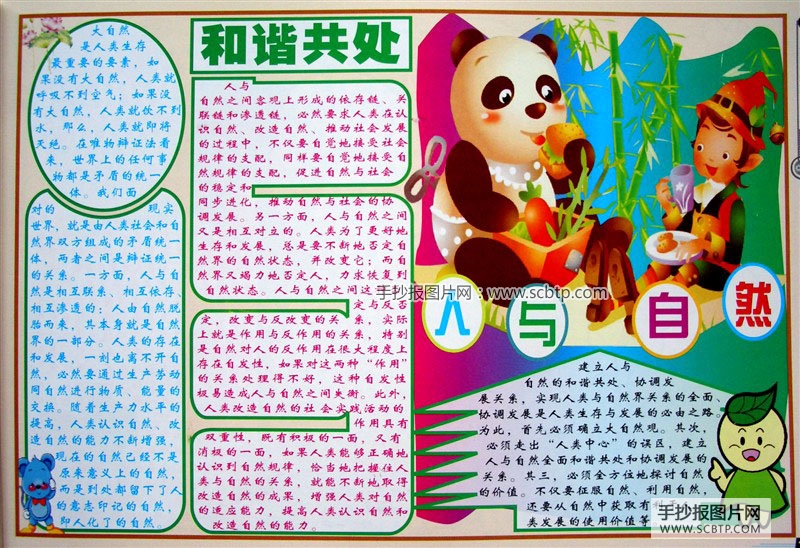 大自然
是人类生存
最重要的要素，如
果没有大自然，人类就
呼吸不到空气；如果没
有大自然，人类就饮不到
水，那么，人类就即将
灭绝。在唯物辩证法看
来，世界上的任何事
物都是矛盾的统一
体。我们面
对的 现实
世界，就是由人类社会和自
然界双方组成的矛盾统一
体，两者之间是辩证统一
的关系。一方面，人与自
然是相互联系、相互依存、
相互渗透的；人由自然脱
胎而来，其本身就是自然
界的一部分。人类的存在
和发展，一刻也离不开自
然，必然要通过生产劳动
同自然进行物质、能量的
交换。随着生产力水平的
提高，人类认识自然、改
造自然的能力不断增强，
现在的自然已经不是
原来意义上的自然，
而是到处都留下了人
的意志印记的自然，
即人化了的自然。
和谐共处
人与
自然之间客观上形成的依存链、关
联链和渗透链，必然要求人类在认
识自然、改造自然、推动社会发展
的过程中，不仅要自觉地接受社会
规律的支配，同样要自觉地接受自然
规律的支配，促进自然与社会
的稳定和
同步进化，推动自然与社会的协
调发展。另一方面，人与自然之间
又是相互对立的。人类为了更好地
生存和发展，总是要不断地否定自
然界的自然状态，并改变它；而自
然界又竭力地否定人，力求恢复到
自然状态。人与自然之间这
定与反否
定，改变与反改变的关系，实际
上就是作用与反作用的关系，特别
是自然对人的反作用在很大程度上
存在自发性，如果对这两种“作用”
的关系处理得不好，这种自发性
极易造成人与自然之间失衡。此外，
人类改造自然的社会实践活动的
作用具有
双重性，既有积极的一面，又有
消极的一面，如果人类能够正确地
认识到自然规律，恰当地把握住人
类与自然的关系，就能不断地取得
改造自然的成果，增强人类对自然
的适应能力，提高人类认识自然和
改造自然的能力。
手抄报图片网：www.scbtp.com
人与自然
建立人与
自然的和谐共处、协调发
展关系，实现人类与自然界关系的全面、
协调发展是人类生存与发展的必由之路。
为此，首先必须确立大自然观。其次，
必须走出“人类中心”的误区，建立
人与自然全面和谐共处和协调发展的
关系。其三，必须全方位地探讨自然
的价值。不仅要征服自然，利用自然，
还要从自然中获取有
类发展的使用价值等
手抄报图片网
WWW.SCBTP.COM